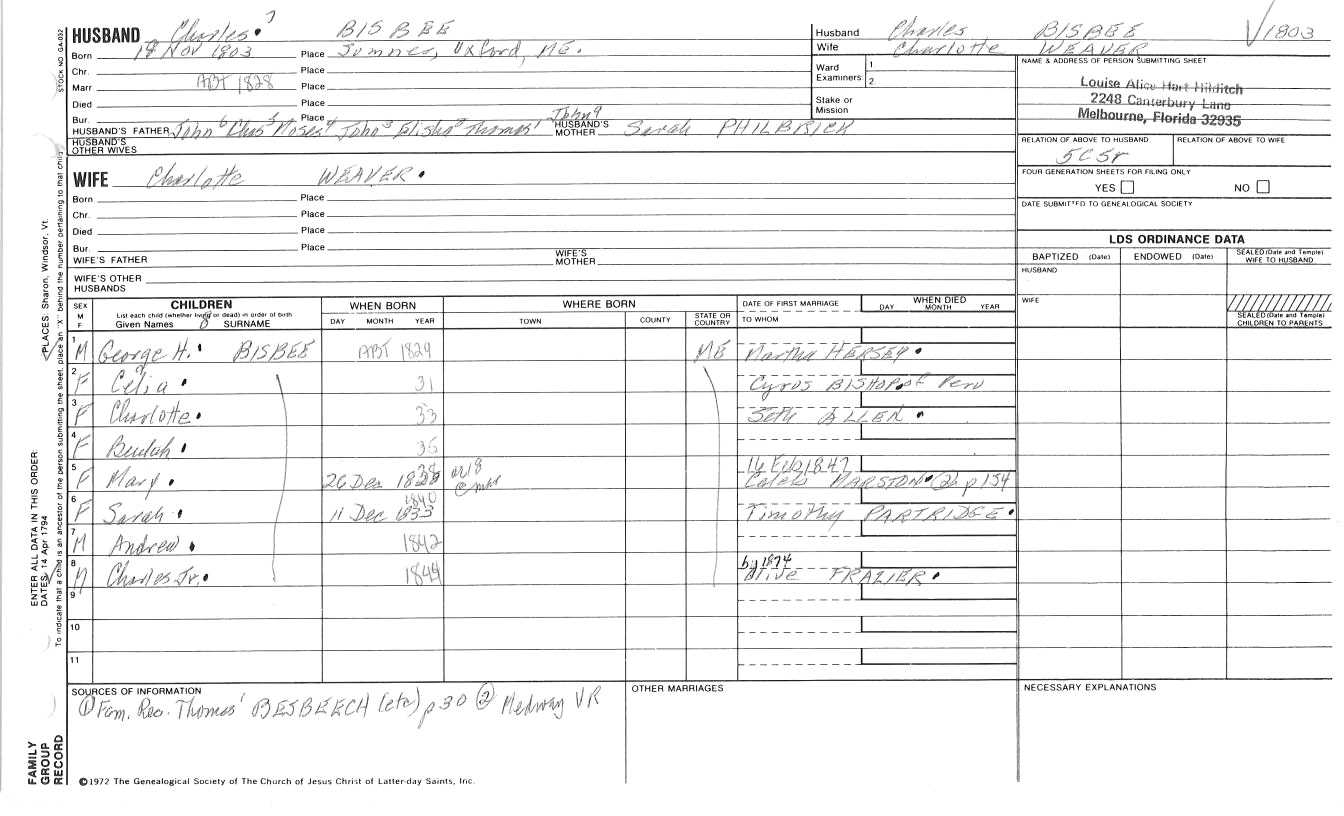 STOCK NO. GA-032
HUSBAND Charles 7 BISBEE
Born 18 Nov 1803 Place Sumner, Oxford, ME.
Chr. Place
Marr ABT 1828 Place
Died Place
Bur. Place
HUSBAND'S FATHER John 6 Chas 5 Moses 4 John 3 Elisha 2 Thomas 1 John 9 HUSBAND'S MOTHER Sarah PHILBRICK
HUSBAND'S OTHER WIVES
WIFE Charlotte WEAVER.
Born Place
Chr. Place
Died Place
Bur. Place
WIFE'S FATHER WIFE'S MOTHER
WIFE'S OTHER HUSBANDS
Husband Charles BISBEE √1803
Wife Charlotte WEAVER
Ward Examiners 1 2
Stake or Mission
NAME & ADDRESS OF PERSON SUBMITTING SHEET
Louise Alice Hart Hilditch
2248 Canterbury Lane
Melbourne, Florida 32935
RELATION OF ABOVE TO HUSBAND RELATION OF ABOVE TO WIFE
5C5r
FOUR GENERATION SHEETS FOR FILING ONLY
YES NO
DATE SUBMITTED TO GENEALOGICAL SOCIETY
LDS ORDINANCE DATA
BAPTIZED (Date) ENDOWED (Date) SEALED (Date and Temple) WIFE TO HUSBAND
HUSBAND
WIFE
SEALED (Date and Temple) CHILDREN TO PARENTS
SEX M F CHILDREN WHEN BORN WHERE BORN DATE OF FIRST MARRIAGE WHEN DIED
List each child (whether living or dead) in order of birth DAY MONTH YEAR
Given Names SURNAME DAY MONTH YEAR TOWN COUNTY STATE OR COUNTRY TO WHOM
1 M George H. BISBEE ABT 1829 ME Martha HERSEY.
2 F Celia 31 Cyrus BISHOP of Peru
3 F Charlotte. 33 Seth ALLEN.
4 F Beulah 35
16 Feb 1847
5 F Mary. 26 Dec 1838 Caleb MARSTON. (2) p 154
1840
6 F Sarah 11 Dec 1835 Timothy PARTRIDGE.
7 M Andrew 1842
by 1874
8 M Charles Jr. 1844 Olive FRAZIER.
9
10
11
SOURCES OF INFORMATION OTHER MARRIAGES NECESSARY EXPLANATIONS
① Fam. Rec. Thomas 1 BESBEECH (etc) p 30 ② Medway VR
©1972 The Genealogical Society of The Church of Jesus Christ of Latter-day Saints, Inc.
FAMILY GROUP RECORD
ENTER ALL DATA IN THIS ORDER:
DATES: 14 Apr 1794
PLACES: Sharon, Windsor, Vt.
To indicate that a child is an ancestor of the person submitting the sheet, place an "X" behind the number pertaining to that child.